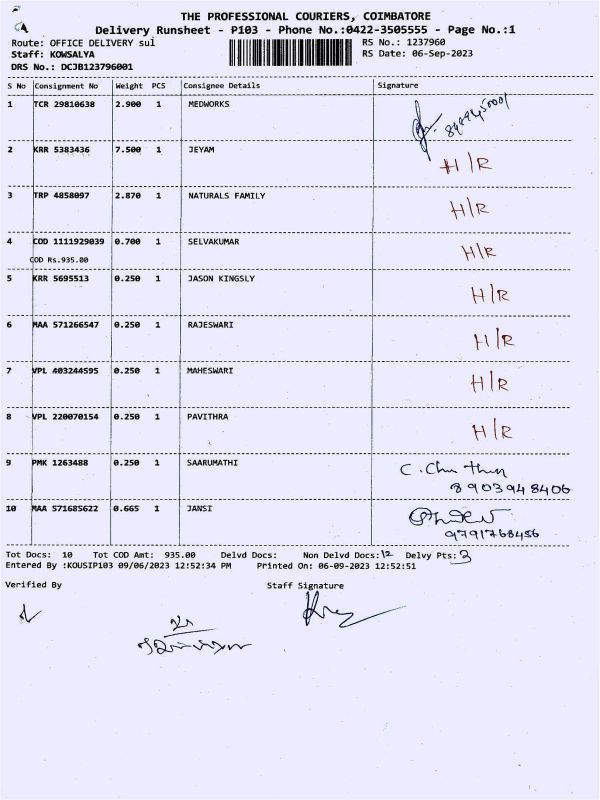 THE PROFESSIONAL COURIERS, COIMBATORE
Delivery Runsheet - P103 - Phone No.:0422-3505555 - Page No.:1
Route: OFFICE DELIVERY sul RS No.: 1237960
Staff: KOWSALYA RS Date: 06-Sep-2023
DRS No.: DCJB123796001
S No Consignment No Weight PCS Consignee Details Signature
1 TCR 29810638 2.900 1 MEDWORKS
2 KRR 5383436 7.500 1 JEYAM H/R
3 TRP 4858097 2.870 1 NATURALS FAMILY H/R
4 COD 1111929039 0.700 1 SELVAKUMAR H/R
COD Rs.935.00
5 KRR 5695513 0.250 1 JASON KINGSLY H/R
6 MAA 571266547 0.250 1 RAJESWARI H/R
7 VPL 403244595 0.250 1 MAHESWARI H/R
8 VPL 220070154 0.250 1 PAVITHRA H/R
9 PMK 1263488 0.250 1 SAARUMATHI
8903948406
10 MAA 571685622 0.665 1 JANSI
9791768456
Tot Docs: 10 Tot COD Amt: 935.00 Delvd Docs: Non Delvd Docs: 12 Delvy Pts: 3
Entered By :KOUSIP103 09/06/2023 12:52:34 PM Printed On: 06-09-2023 12:52:51
Verified By Staff Signature